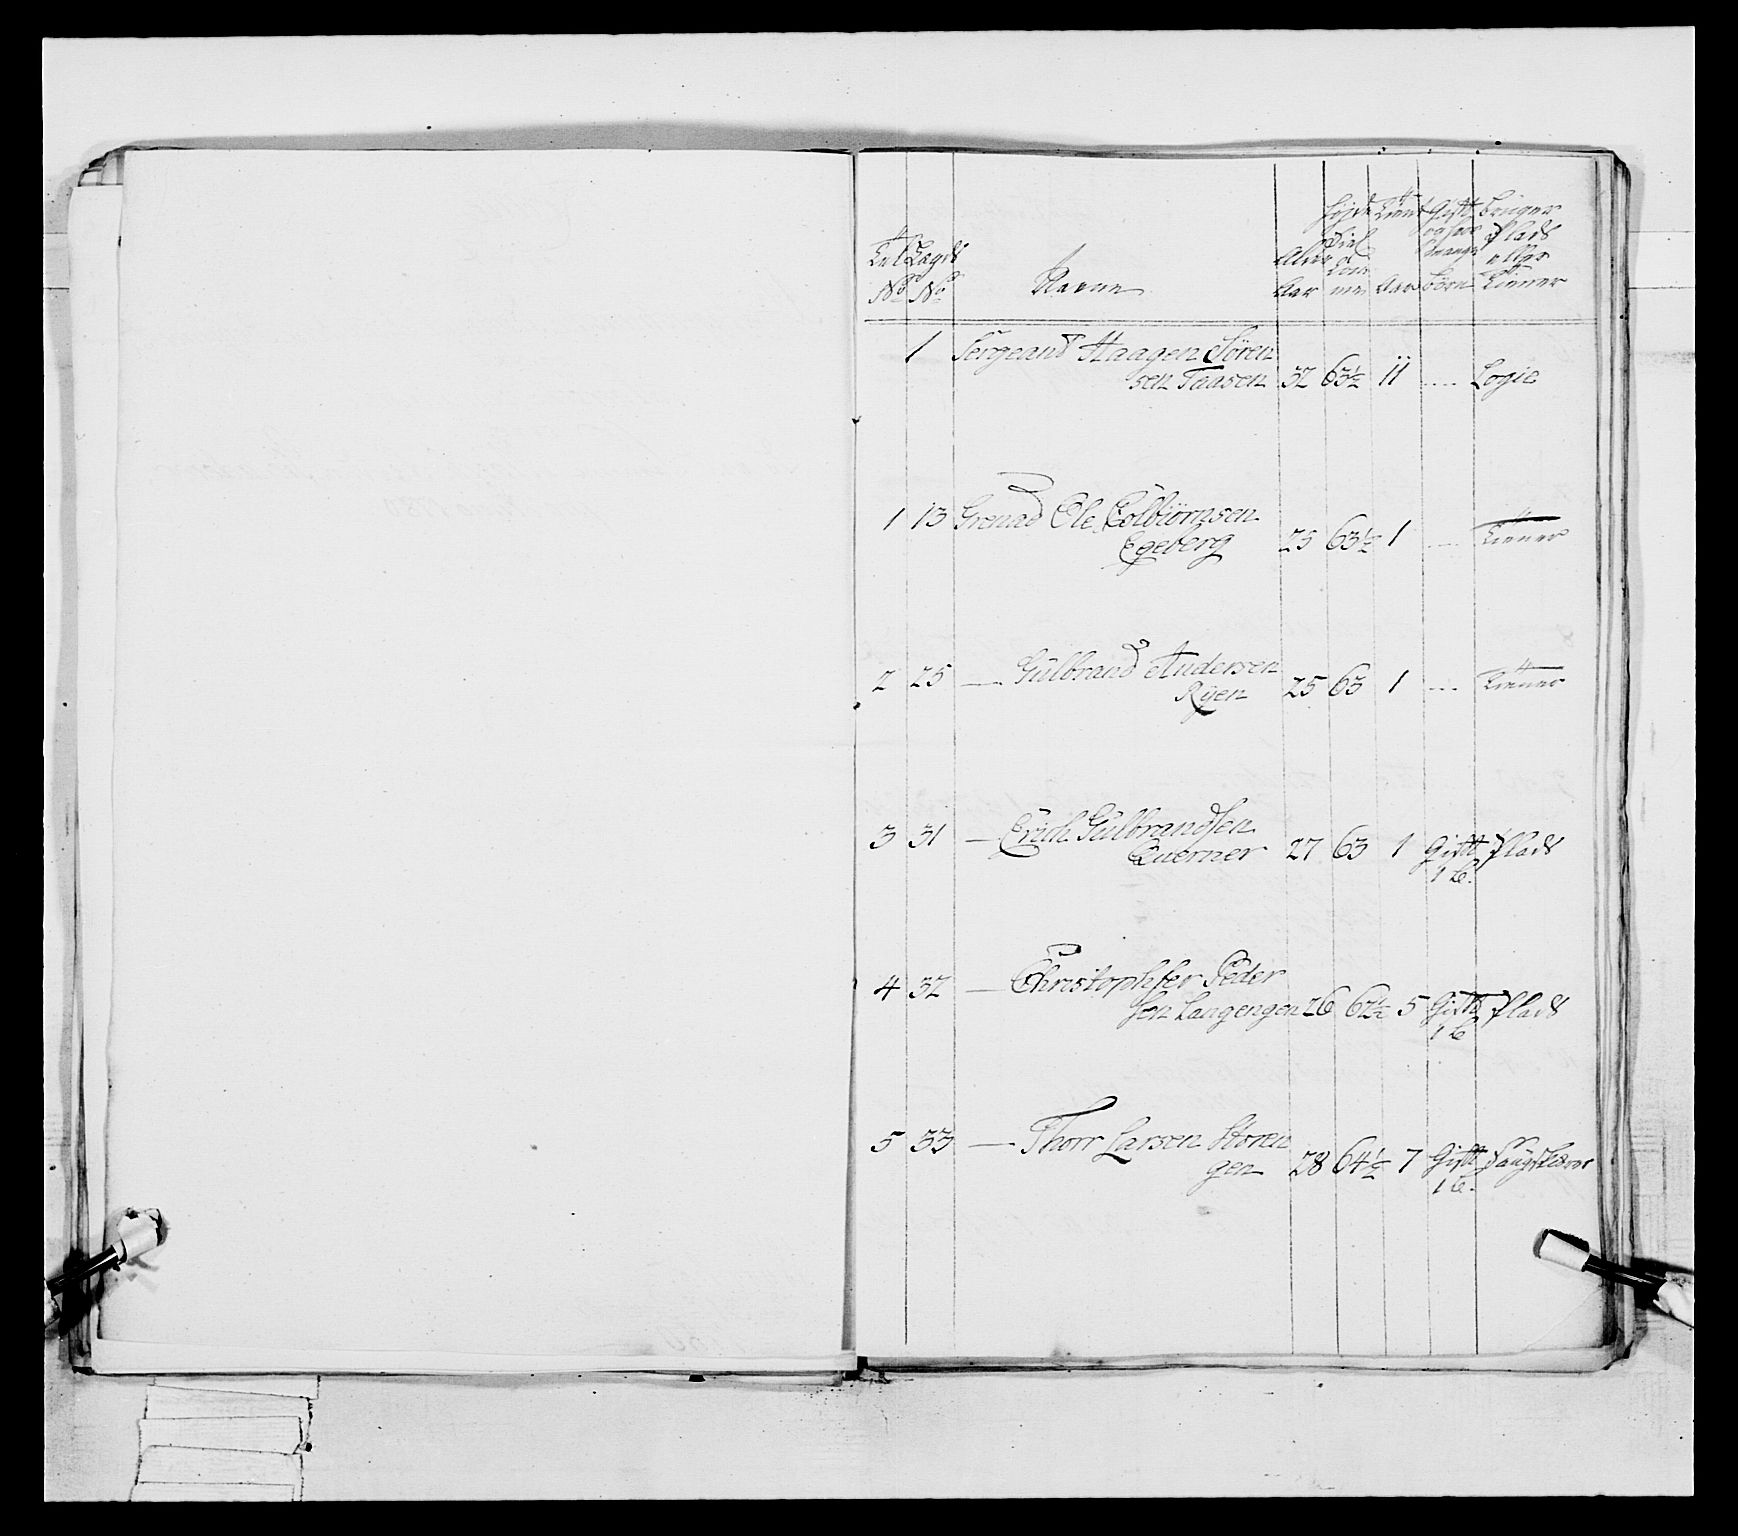 Tal Lægds Navne Alder Højde Tient Gift Bruger
No No Aar Aar Børn Plads
eller
Tiener
1 Sergeand Haagen Søren
sen Taasen 37 63½ 11 .... Logie
1 13 Grenad Ole Colbiörnsen
Egeberg 25 63½ 1 .... Tiener
2 25 — Gulbrand Andersen
Ryen 25 63 1 .... Tiener
3 31 — Erich Gulbrandsen
Querner 27 63 1 Gift Plads
1 B.
4 32 — Christopher Peder
sen Langengen 26 62½ 5 Gift Plads
1 B
5 33 — Thorr Larsen Storen
gen 28 64½ 7 Gift
1 B.